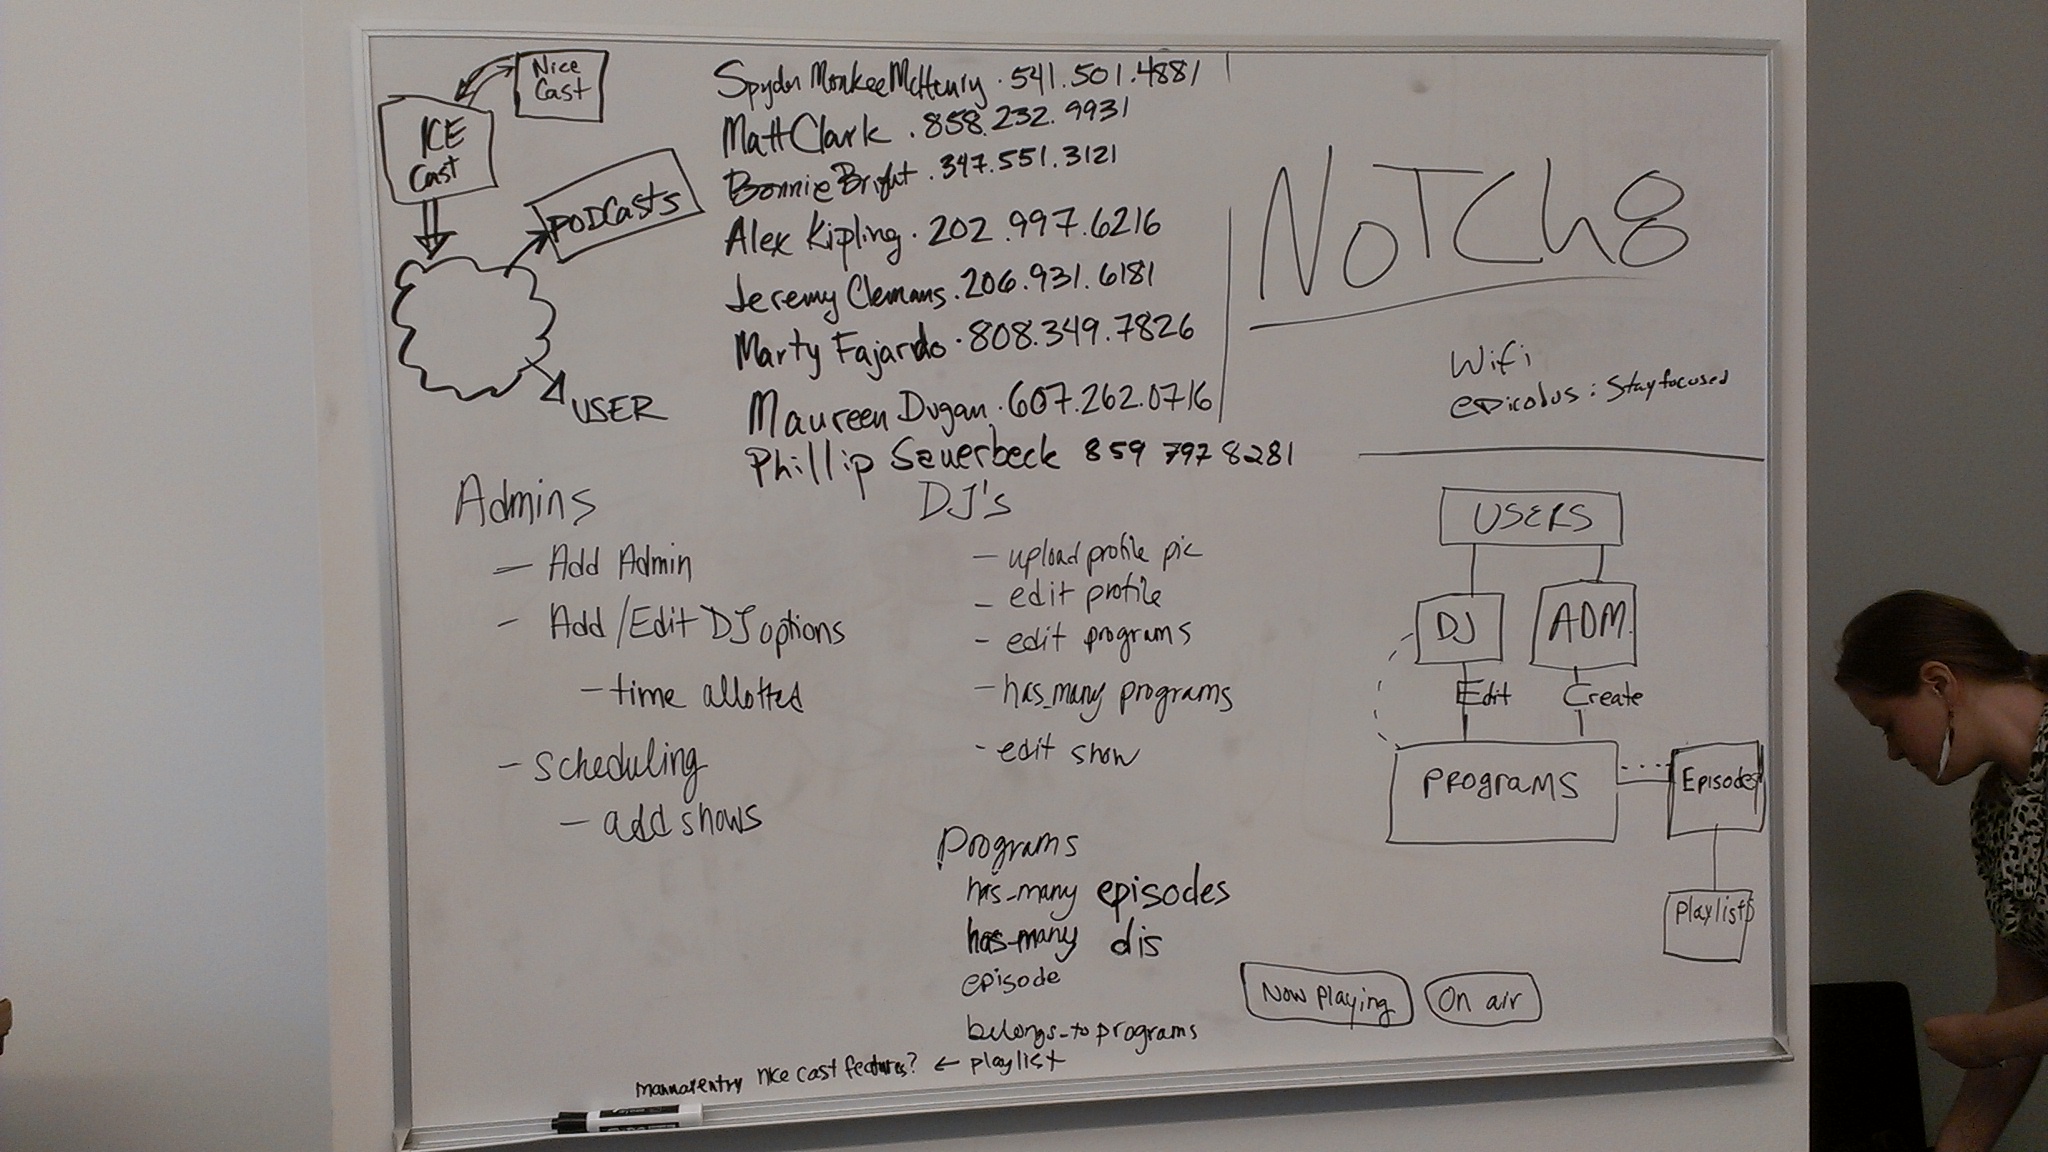 Nice
Cast
ICE
Cast
PODCasts
USER
Spyder Monkee McHenry · 541.501.4881
Matt Clark . 858.232.9931
Bonnie Bright . 347.551.3121
Alex Kipling . 202.997.6216
Jeremy Clemans . 206.931.6181
Marty Fajardo . 808.349.7826
Maureen Dugan . 607.262.0716
Phillip Seuerbeck 859 797 8281
NoTCh8
Wifi
epicodus : Stayfocused
Admins
- Add Admin
- Add/Edit DJ options
- time allotted
- scheduling
- add shows
DJ's
- upload profile pic
- edit profile
- edit programs
- has_many programs
- edit show
Programs
has_many episodes
has_many djs
episode
belongs_to programs
manual entry nice cast features? ← playlist
USERS
DJ
ADM.
Edit
Create
PROGRAMS
Episodes
Playlists
Now playing
On air